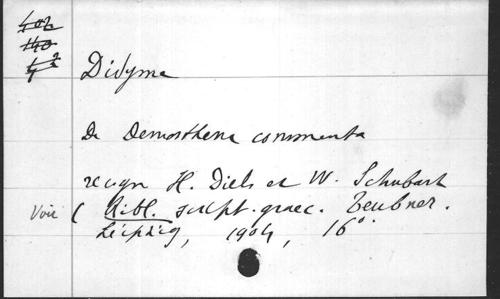 402
140
4²
Didyme
De Demosthena commenta
recogn H. Diels et W. Schubart
Voir ( Bibl. script. graec. Teubner.
Leipzig, 1904, 16°.